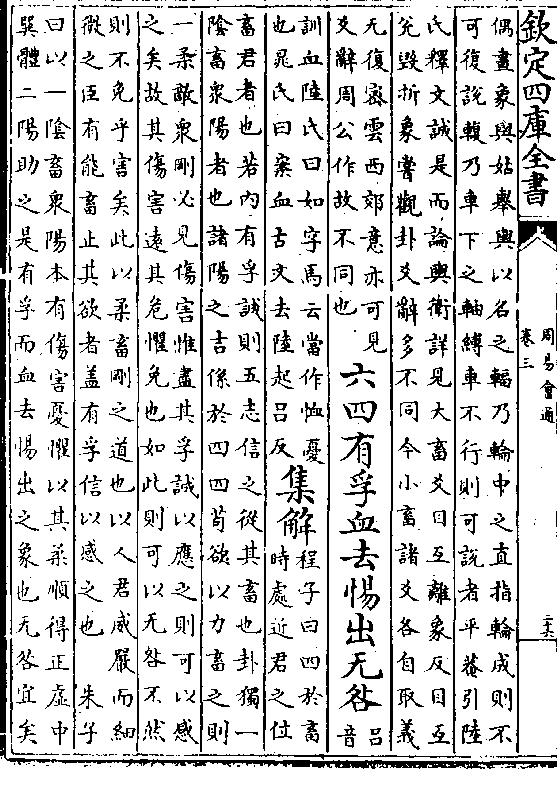 欽定四庫全書
周易會通
卷三
二六
偶畫象與姑舉輿以名之輻乃輪中之直指輪成則不
可復説輹乃車下之軸縛車不行則可說者乎菴引陸
氏釋文誠是而論輿衛詳見大畜爻目互離象反目互
兊毁折象嘗觀卦爻辭多不同今小畜諸爻各自取義
无復宻雲西郊意亦可見
爻辭周公作故不同也
六四有孚血去惕出无咎
吕音
訓血陸氏曰如字馬云當作恤憂
也晁氏曰案血古文去陸起吕反
集解
程子曰四於畜
時處近君之位
畜君者也若内有孚誠則五志信之從其畜也卦獨一
隂畜衆陽者也諸陽之志係於四四苟欲以力畜之則
一柔敵衆剛必見傷害惟盡其孚誠以應之則可以感
之矣故其傷害逺其危懼免也如此則可以无咎不然
則不免乎害矣此以柔畜剛之道也以人君威嚴而細
微之臣有能畜止其欲者盖有孚信以感之也　朱子
曰以一隂畜衆陽本有傷害憂懼以其柔順得正虚中
巽體二陽助之是有孚而血去惕出之象也无咎宜矣